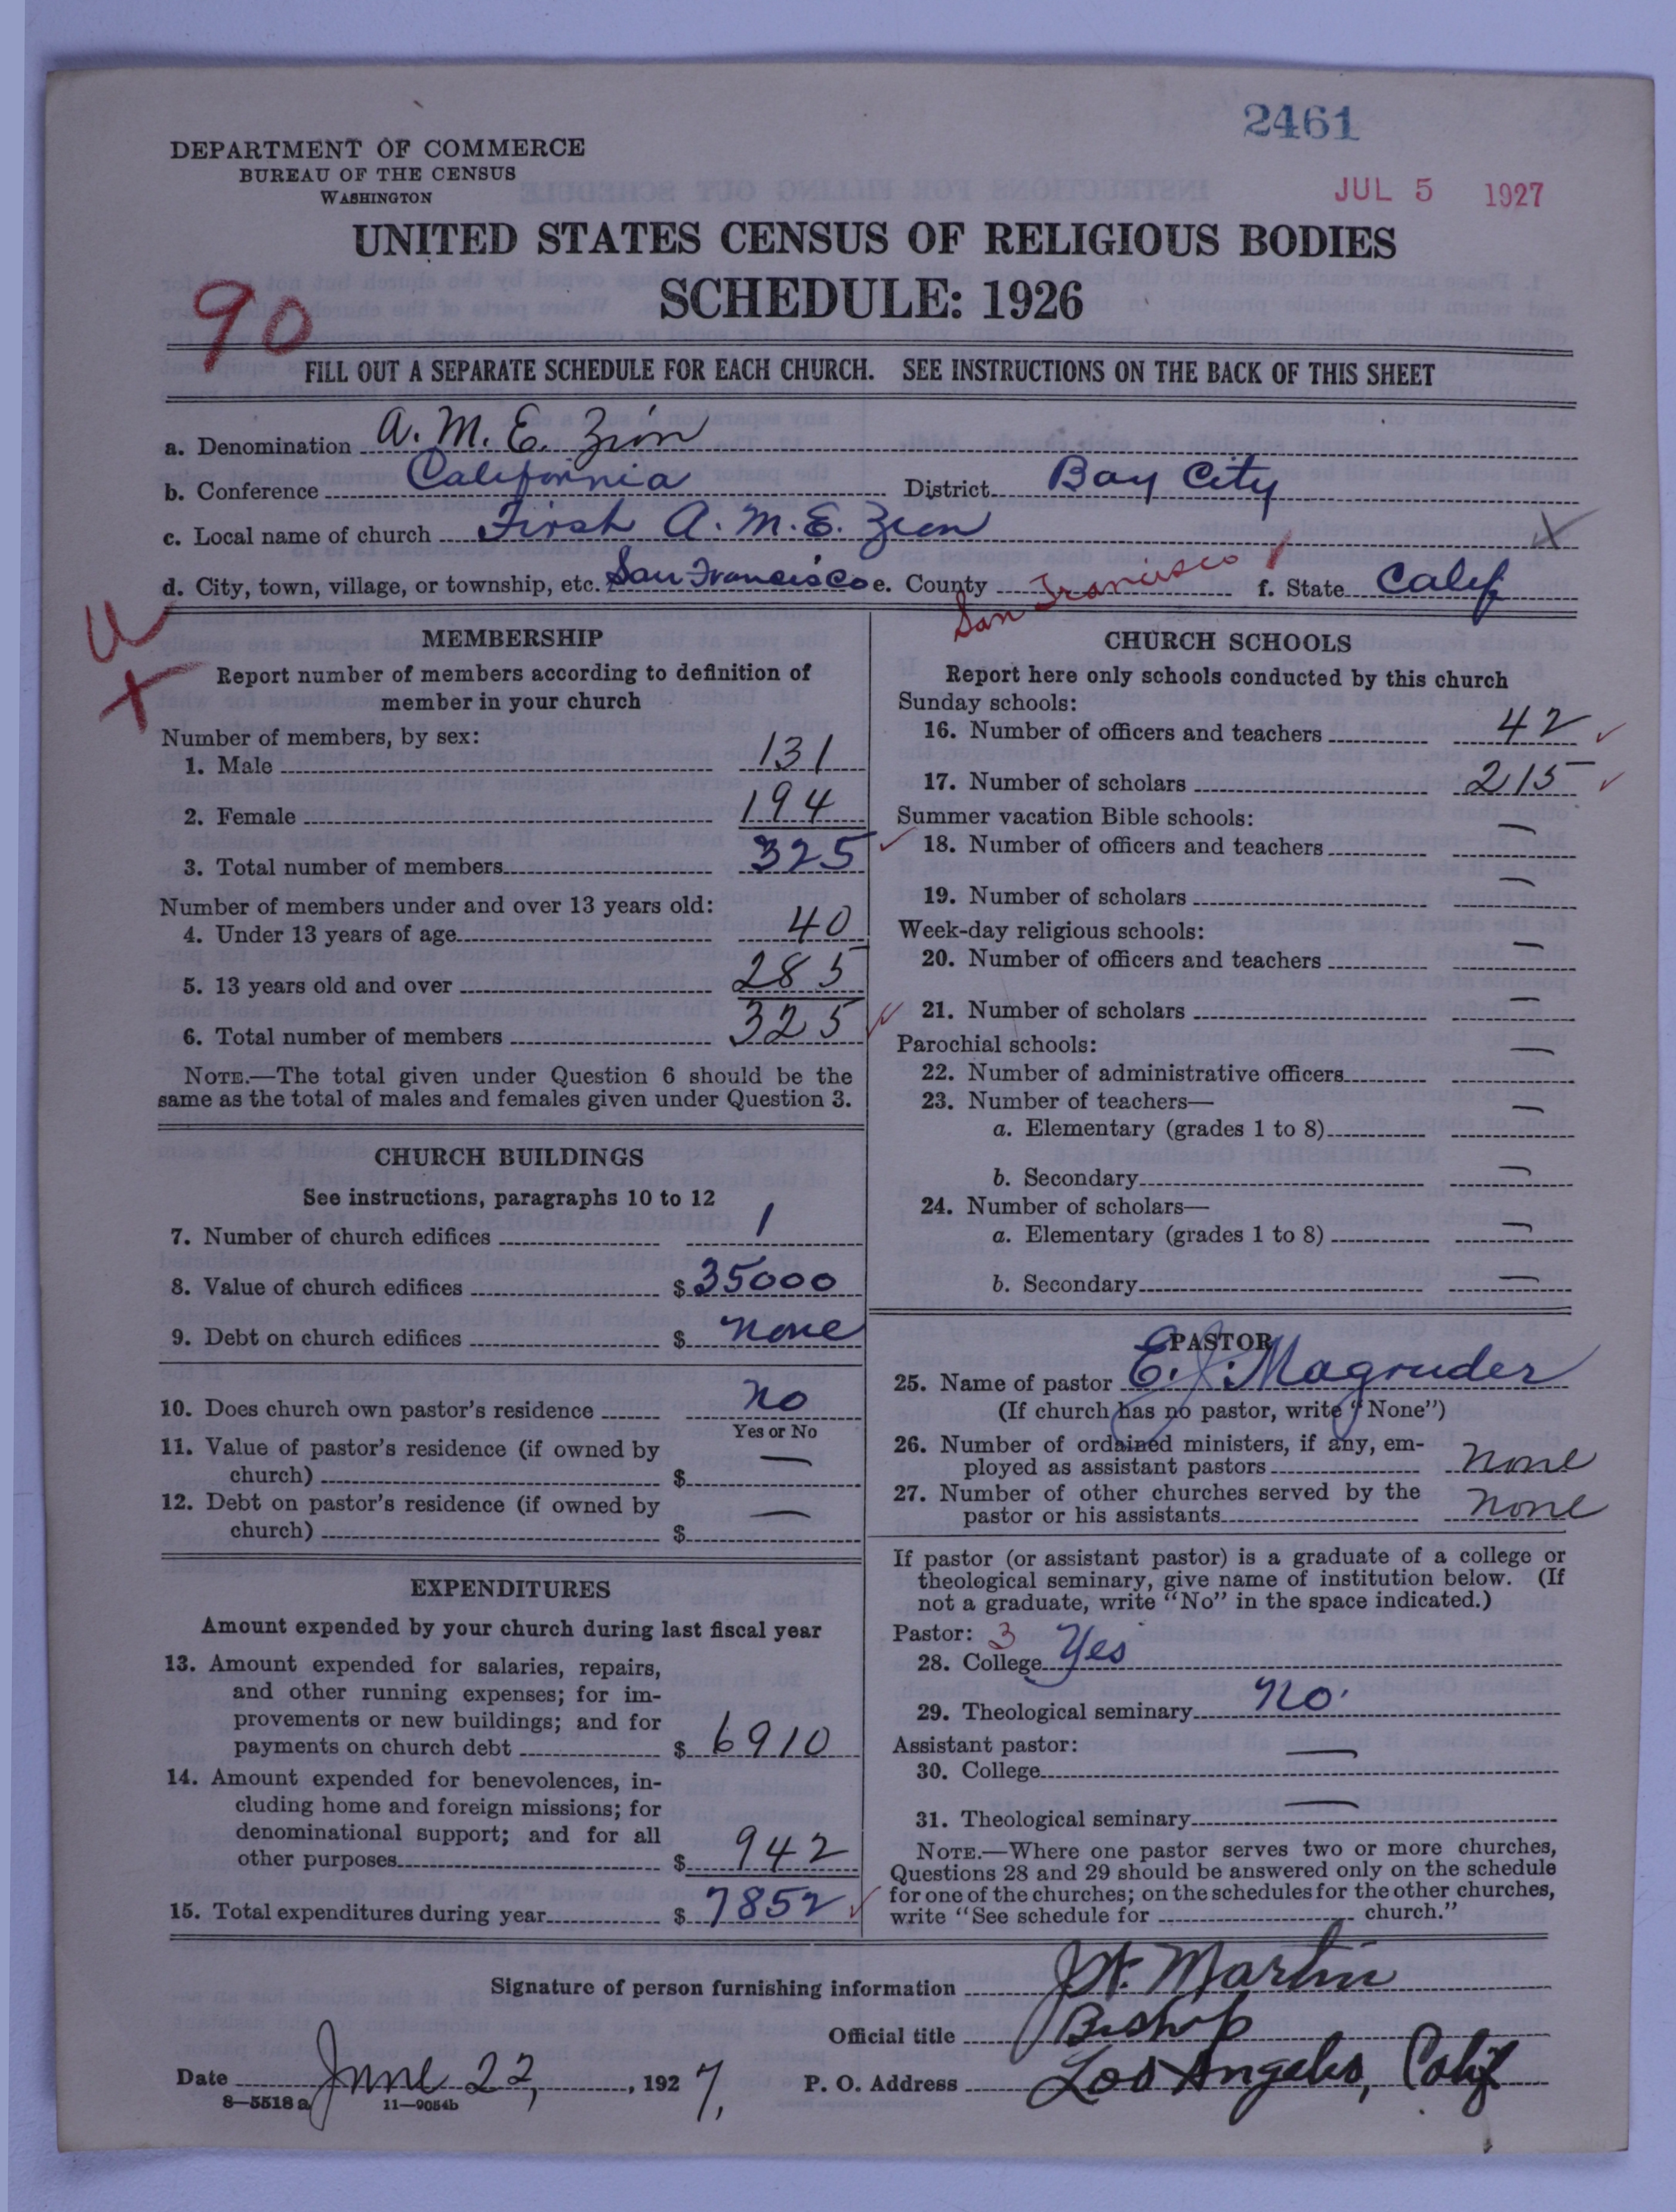 2461
DEPARTMENT OF COMMERCE
BUREAU OF THE CENSUS
WASHINGTON
JUL 5 1927
UNITED STATES CENSUS OF RELIGIOUS BODIES
SCHEDULE: 1926
90
FILL OUT A SEPARATE SCHEDULE FOR EACH CHURCH. SEE INSTRUCTIONS ON THE BACK OF THIS SHEET
a. Denomination A. M. E. Zion
b. Conference California District Bay City
c. Local name of church First A. M. E. Zion
d. City, town, village, or township, etc. San Francisco e. County San Francisco f. State Calif
MEMBERSHIP
Report number of members according to definition of
member in your church
Number of members, by sex:
1. Male 131
2. Female 194
3. Total number of members 325
Number of members under and over 13 years old:
4. Under 13 years of age 40
5. 13 years old and over 285
6. Total number of members 325
NOTE.—The total given under Question 6 should be the
same as the total of males and females given under Question 3.
CHURCH BUILDINGS
See instructions, paragraphs 10 to 12
7. Number of church edifices 1
8. Value of church edifices $ 35000
9. Debt on church edifices $ none
10. Does church own pastor's residence no
Yes or No
11. Value of pastor's residence (if owned by
church) $ —
12. Debt on pastor's residence (if owned by
church) $ —
EXPENDITURES
Amount expended by your church during last fiscal year
13. Amount expended for salaries, repairs,
and other running expenses; for im-
provements or new buildings; and for
payments on church debt $ 6910
14. Amount expended for benevolences, in-
cluding home and foreign missions; for
denominational support; and for all
other purposes $ 942
15. Total expenditures during year $ 7852
CHURCH SCHOOLS
Report here only schools conducted by this church
Sunday schools:
16. Number of officers and teachers 42
17. Number of scholars 215
Summer vacation Bible schools:
18. Number of officers and teachers —
19. Number of scholars —
Week-day religious schools:
20. Number of officers and teachers —
21. Number of scholars —
Parochial schools:
22. Number of administrative officers —
23. Number of teachers—
a. Elementary (grades 1 to 8) —
b. Secondary —
24. Number of scholars—
a. Elementary (grades 1 to 8) —
b. Secondary —
PASTOR
25. Name of pastor E. J. Magruder
(If church has no pastor, write "None")
26. Number of ordained ministers, if any, em-
ployed as assistant pastors none
27. Number of other churches served by the
pastor or his assistants none
If pastor (or assistant pastor) is a graduate of a college or
theological seminary, give name of institution below. (If
not a graduate, write "No" in the space indicated.)
Pastor: 3
28. College Yes
29. Theological seminary no.
Assistant pastor:
30. College —
31. Theological seminary —
NOTE.—Where one pastor serves two or more churches,
Questions 28 and 29 should be answered only on the schedule
for one of the churches; on the schedules for the other churches,
write "See schedule for church."
Signature of person furnishing information J W. Martin
Official title Bishop
Date June 22, 1927, P. O. Address Los Angeles, Calif
8—5518a 11—9054b